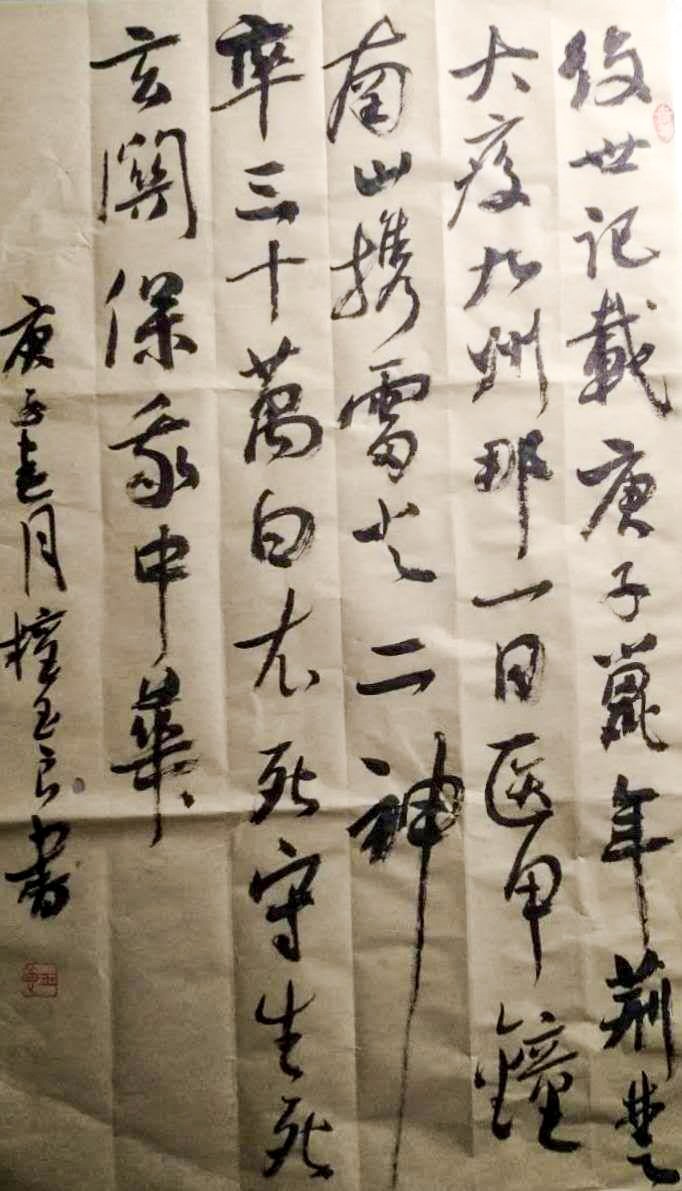 後世记載庚子鼠年荆楚
大疫九州那一日医甲鐘
南山携雷火二神
率三十萬白衣死守生死
玄關保我中華
庚子月玉良書